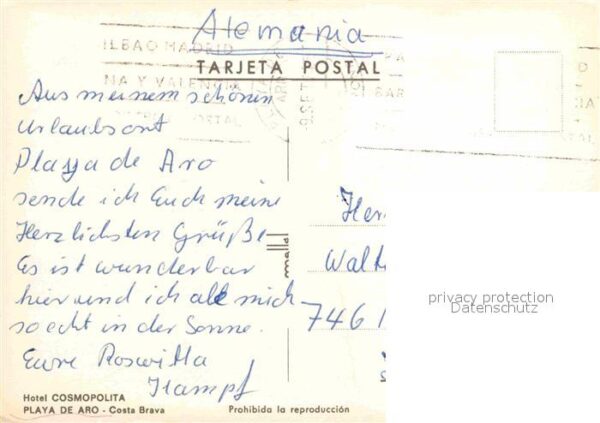 Alemania
BILBAO MADRID
NA Y VALENCIA
TARJETA POSTAL
Aus meinem schönen
Urlaubsort
Playa de Aro
sende ich Euch meine
Herzlichsten Grüße
Es ist wunderbar
hier und ich aale mich
so echt in der Sonne.
Eure Roswitta
Kampf
Her
Walt
7461
privacy protection
Datenschutz
Hotel COSMOPOLITA
PLAYA DE ARO - Costa Brava
Prohibida la reproducción